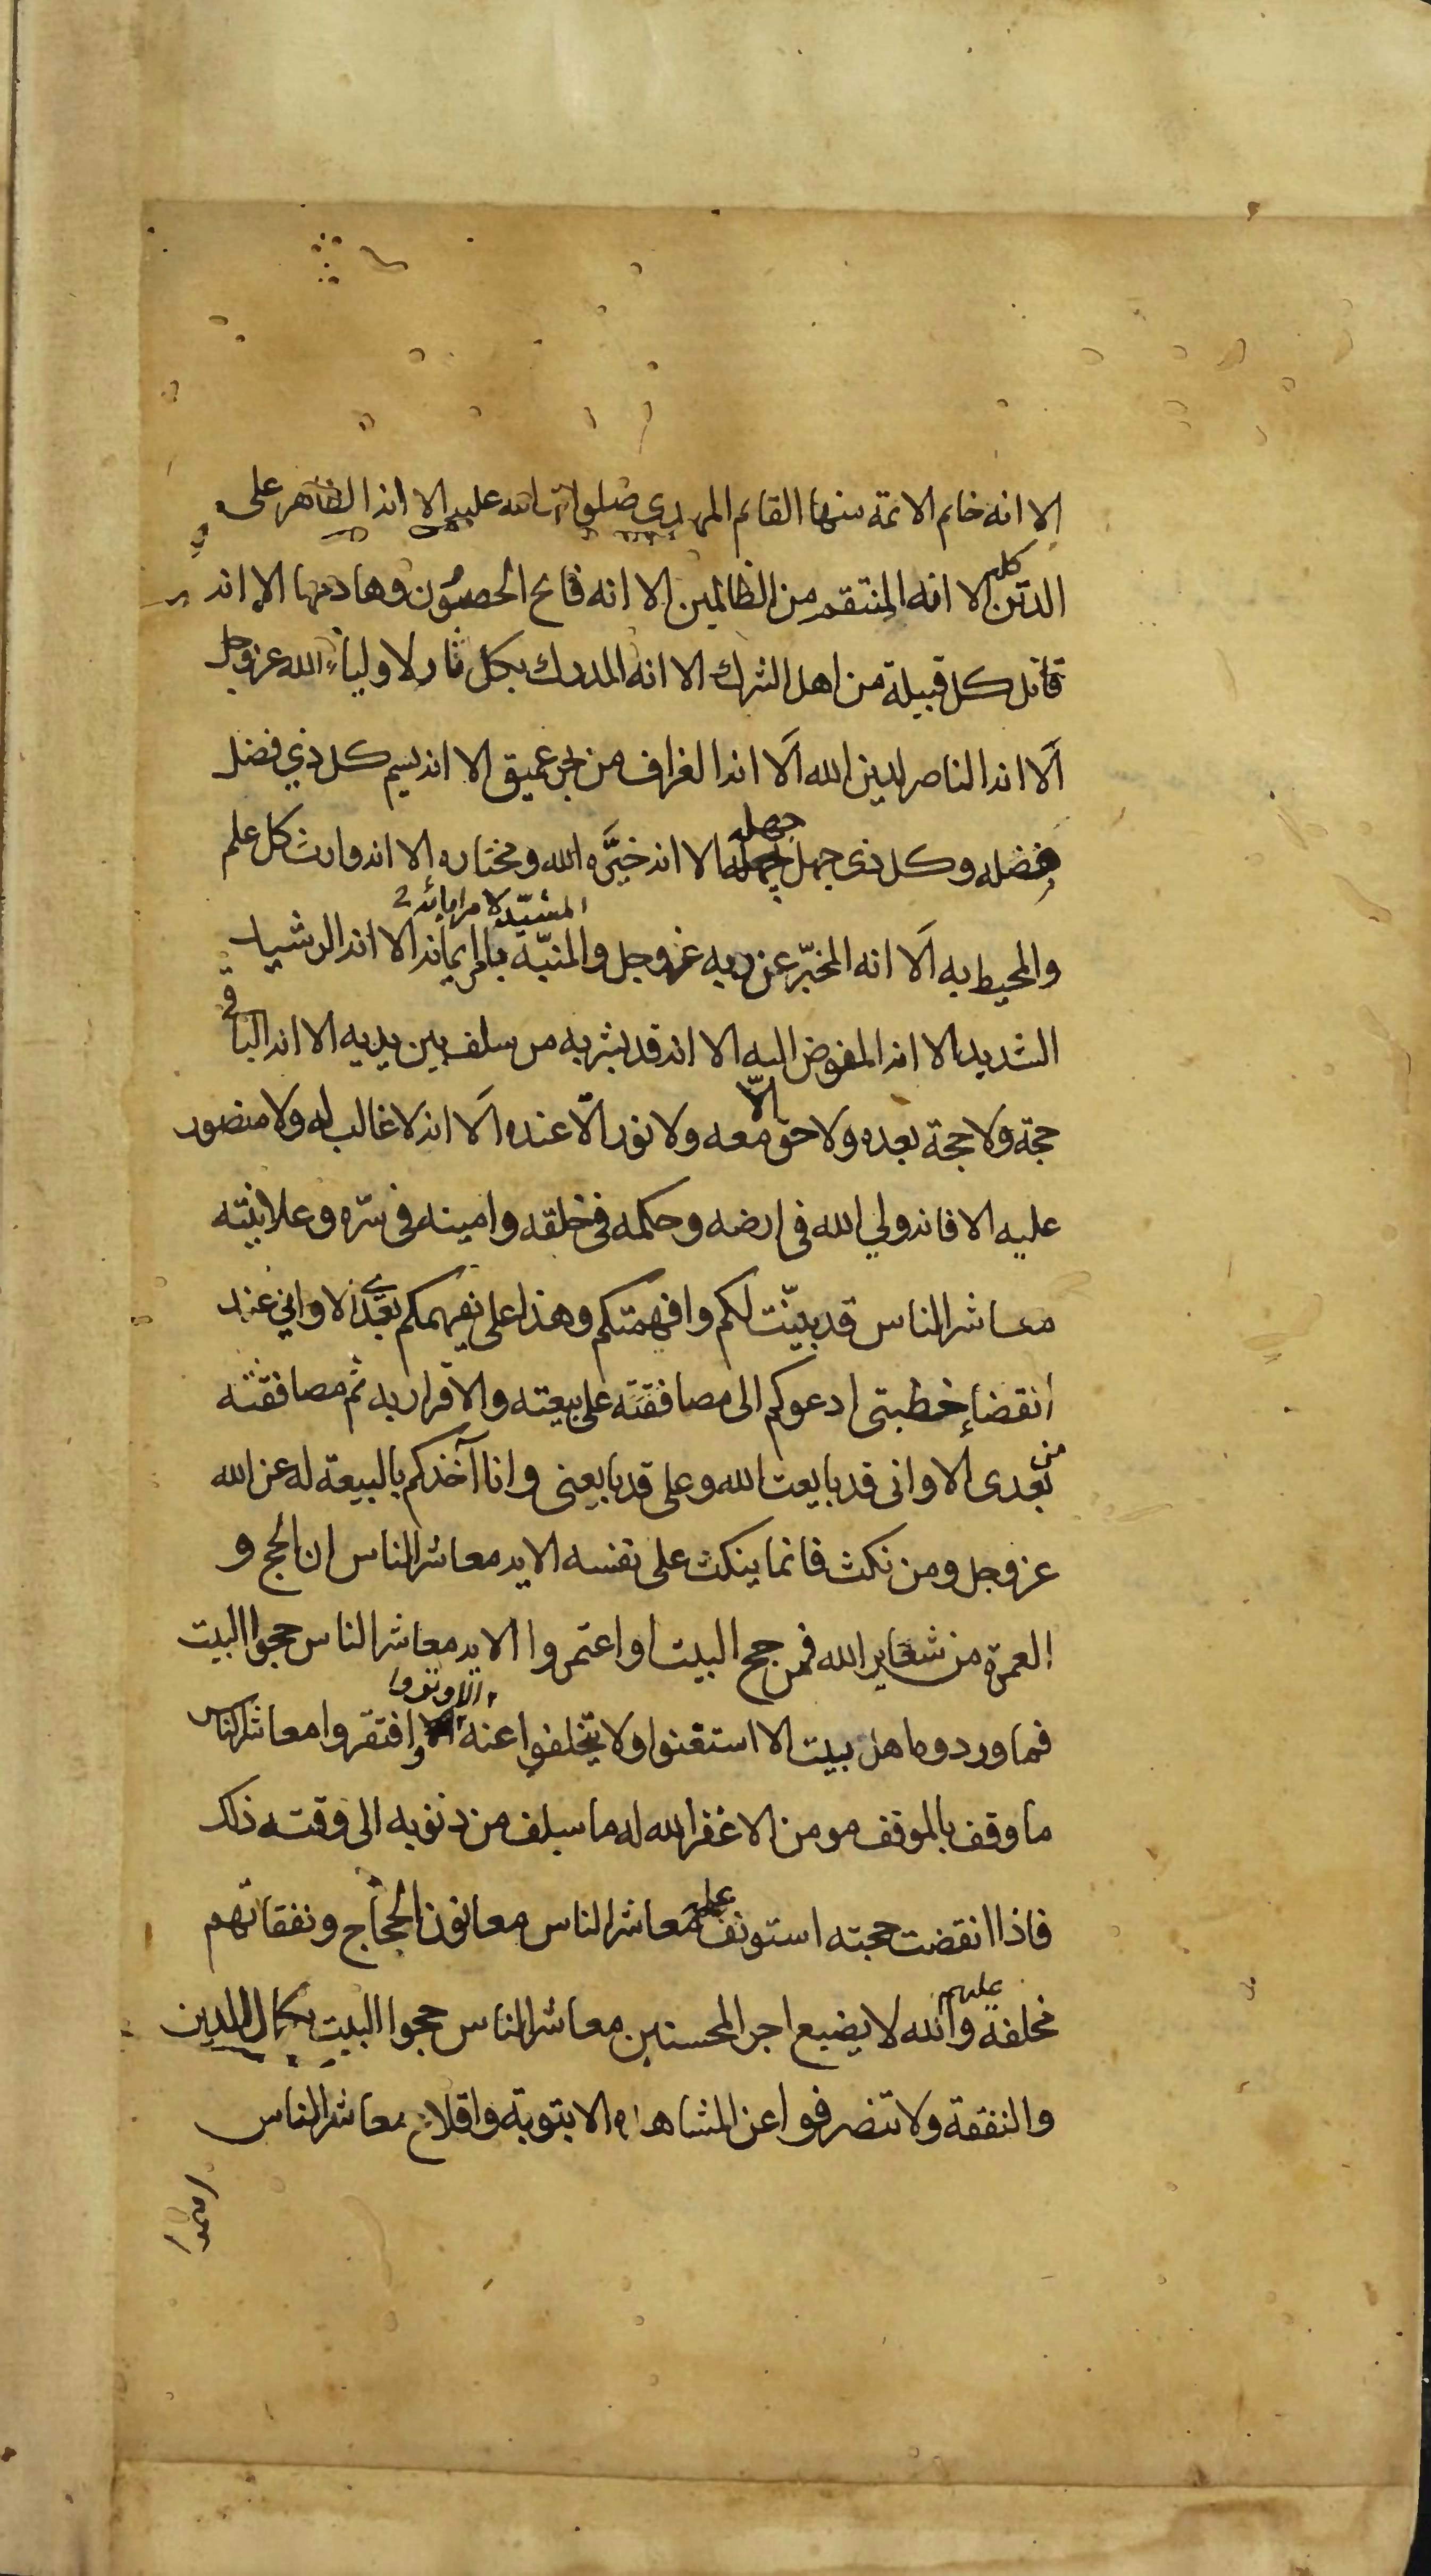 الا انه خاتم الائمة منها القائم المهدي صلوات الله عليه الا انه الظاهر على
الدين كله الا انه المنتقم من الظالمين الا انه فاتح الحصون وهادمها الا انه
قاتل كل قبيلة من اهل الشرك الا انه المدرك بكل ثار لاولياء الله عز وجل
ألا انه الناصر لدين الله ألا انه الغراف من بحر عميق الا انه يسم كل ذي فضل
بفضله وكل ذي جهل بجهله جهله الا انه خيرة الله ومختاره الا انه وارث كل علم
المشيد لامر اياته
والمحيط به ألا انه المخبر عن ربه عز وجل والمنبه بامر ايمانه الا انه الرشيد
الشديد الا انه المفوض اليه الا انه قد بشر به من سلف بين يديه الا انه الباقي
حجة ولا حجة بعده ولا حق الّا معه ولا نور الّا عنده ألا انه لا غالب له ولا منصور
عليه الا فانه ولي الله في ارضه وحكمه في خلقه وامينه في سره وعلانيته
معاشر الناس قد بينت لكم وافهمتكم وهذا علي يفهمكم بعدي الا واني عند
انقضاء خطبتي ادعوكم الى مصافقته على بيعته والاقرار به ثم مصافقته
من بعدى الا وانى قد بايعت الله وعلي قد بايعنى وانا آخذكم بالبيعة له عن الله
عز وجل ومن نكث فانما ينكث على نفسه الايه معاشر الناس ان الحج و
العمرة من شعاير الله فمن حج البيت او اعتمر والايه معاشر الناس حجوا البيت
فما ورده اهل بيت الا استغنوا ولا تخلفوا عنه الا وتروا وافتقروا معاشر الناس
ما وقف بالموقف مومن الا غفر الله له ما سلف من ذنوبه الى وقته ذلك
فاذا انقضت حجته استونف عليه معاشر الناس معانون الحجاج ونفقاتهم
مخلفة عليهم والله لا يضيع اجر المحسنين معاشر الناس حجوا البيت بكمال الدين
والنفقة ولا تنصرفوا عن المشاهد الا بتوبة واقلاع معاشر الناس
اقيموا